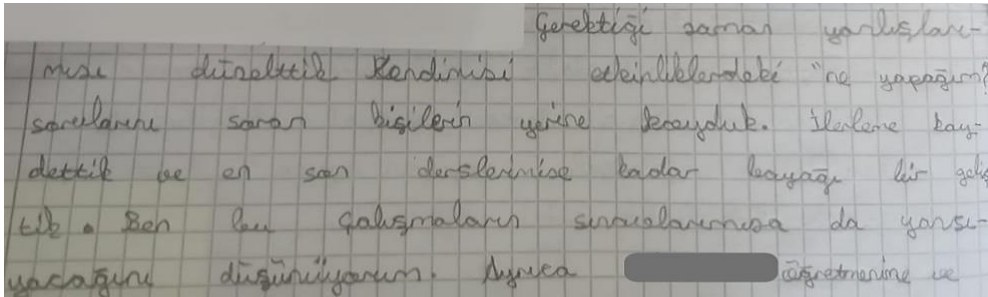 Gerektiği zaman yanlışları-
mızı düzelttik. Kendimizi etkinliklerdeki "ne yapacağım?
sorularını soran kişilerin yerine koyduk. İlerleme kay-
dettik ve en son derslerimize kadar bayağı bir geliş
tik. Ben bu çalışmaların sınavlarımıza da yansı-
yacağını düşünüyorum. Ayrıca öğretmenime ve